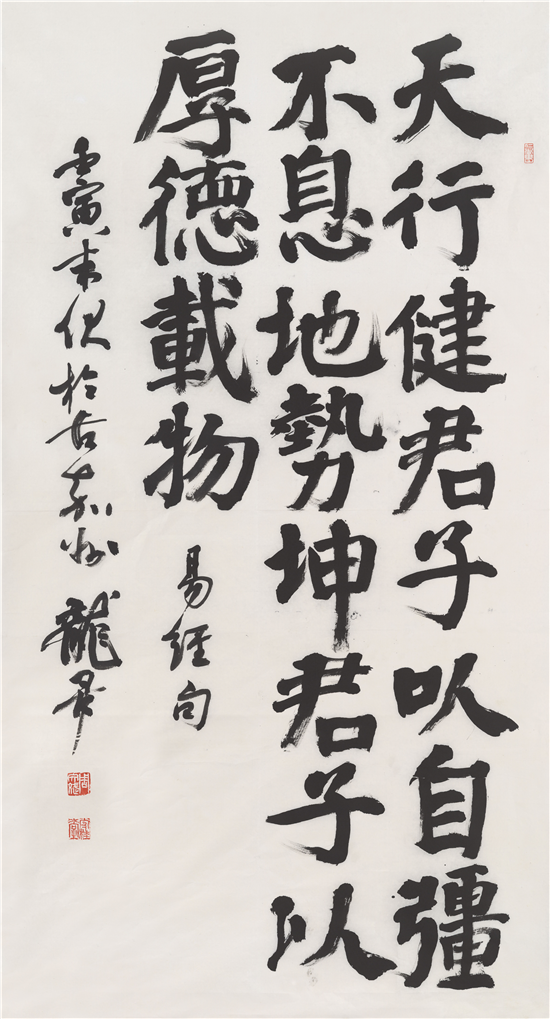 天行健君子以自彊
不息地勢坤君子以
厚德載物
易經句
壬寅末伏於古嘉州龍犀